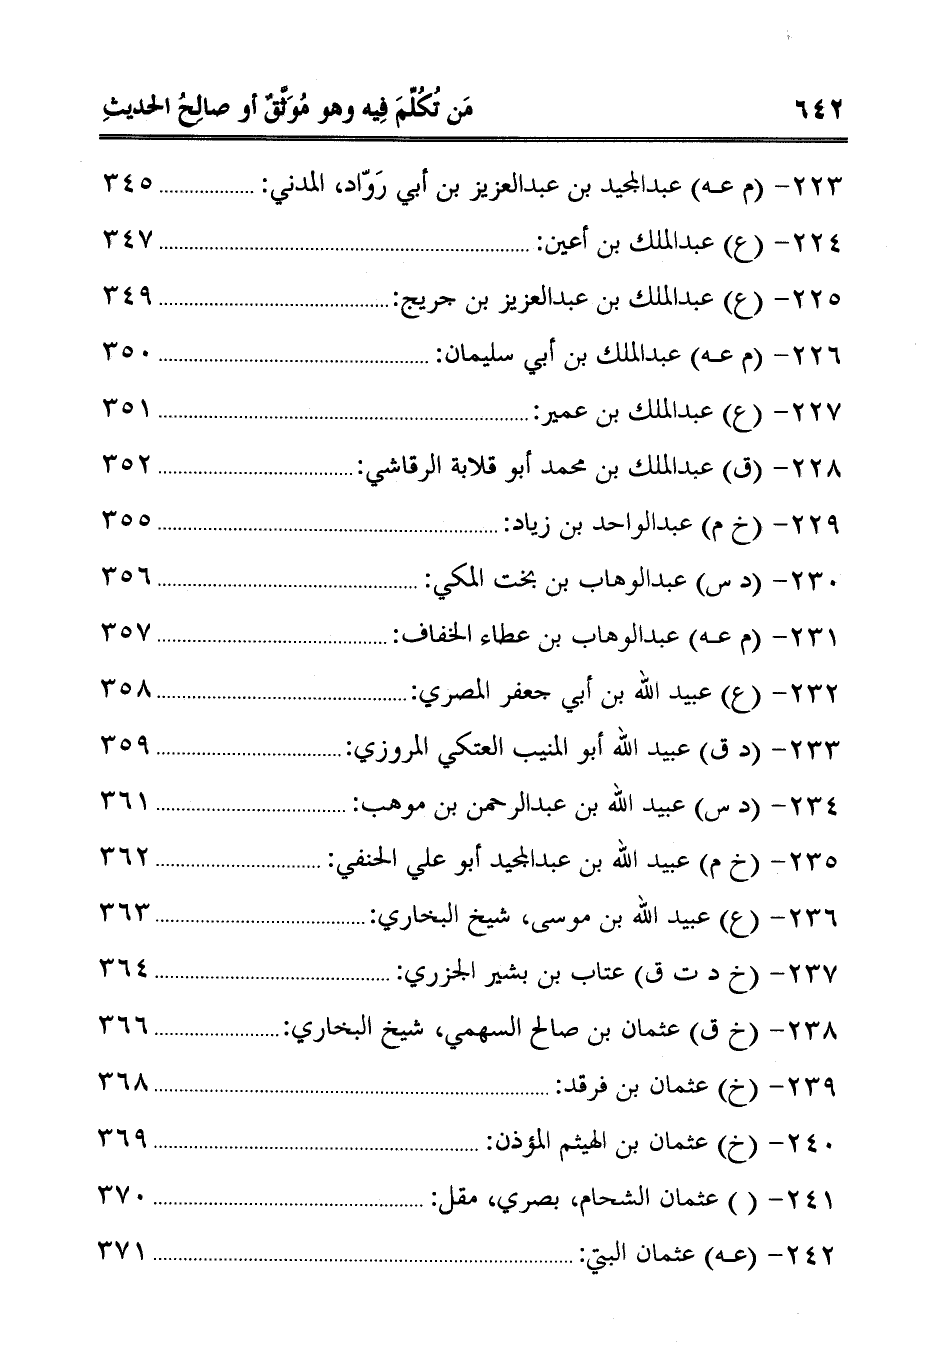 ٦٤٢ مَن تُكُلِّمَ فِيه وهو مُوَثَّقٌ أو صالِحُ الحديثِ
٢٢٣- (م عـه) عبدالمجيد بن عبدالعزيز بن أبي رَوّاد، المدني: ................ ٣٤٥
٢٢٤- (ع) عبدالملك بن أعين: ................ ٣٤٧
٢٢٥- (ع) عبدالملك بن عبدالعزيز بن جريج: ................ ٣٤٩
٢٢٦- (م عـه) عبدالملك بن أبي سليمان: ................ ٣٥٠
٢٢٧- (ع) عبدالملك بن عمير: ................ ٣٥١
٢٢٨- (ق) عبدالملك بن محمد أبو قلابة الرقاشي: ................ ٣٥٢
٢٢٩- (خ م) عبدالواحد بن زياد: ................ ٣٥٥
٢٣٠- (د س) عبدالوهاب بن بخت المكي: ................ ٣٥٦
٢٣١- (م عـه) عبدالوهاب بن عطاء الخفاف: ................ ٣٥٧
٢٣٢- (ع) عبيد الله بن أبي جعفر المصري: ................ ٣٥٨
٢٣٣- (د ق) عبيد الله أبو المنيب العتكي المروزي: ................ ٣٥٩
٢٣٤- (د س) عبيد الله بن عبدالرحمن بن موهب: ................ ٣٦١
٢٣٥- (خ م) عبيد الله بن عبدالمجيد أبو علي الحنفي: ................ ٣٦٢
٢٣٦- (ع) عبيد الله بن موسى، شيخ البخاري: ................ ٣٦٣
٢٣٧- (خ د ت ق) عتاب بن بشير الجزري: ................ ٣٦٤
٢٣٨- (خ ق) عثمان بن صالح السهمي، شيخ البخاري: ................ ٣٦٦
٢٣٩- (خ) عثمان بن فرقد: ................ ٣٦٨
٢٤٠- (خ) عثمان بن الهيثم المؤذن: ................ ٣٦٩
٢٤١- ( ) عثمان الشحام، بصري، مقل: ................ ٣٧٠
٢٤٢- (عـه) عثمان البتي: ................ ٣٧١